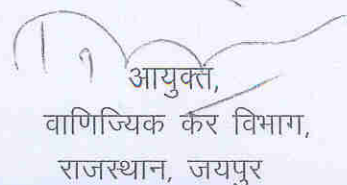 आयुक्त,
वाणिज्यिक कर विभाग,
राजस्थान, जयपुर